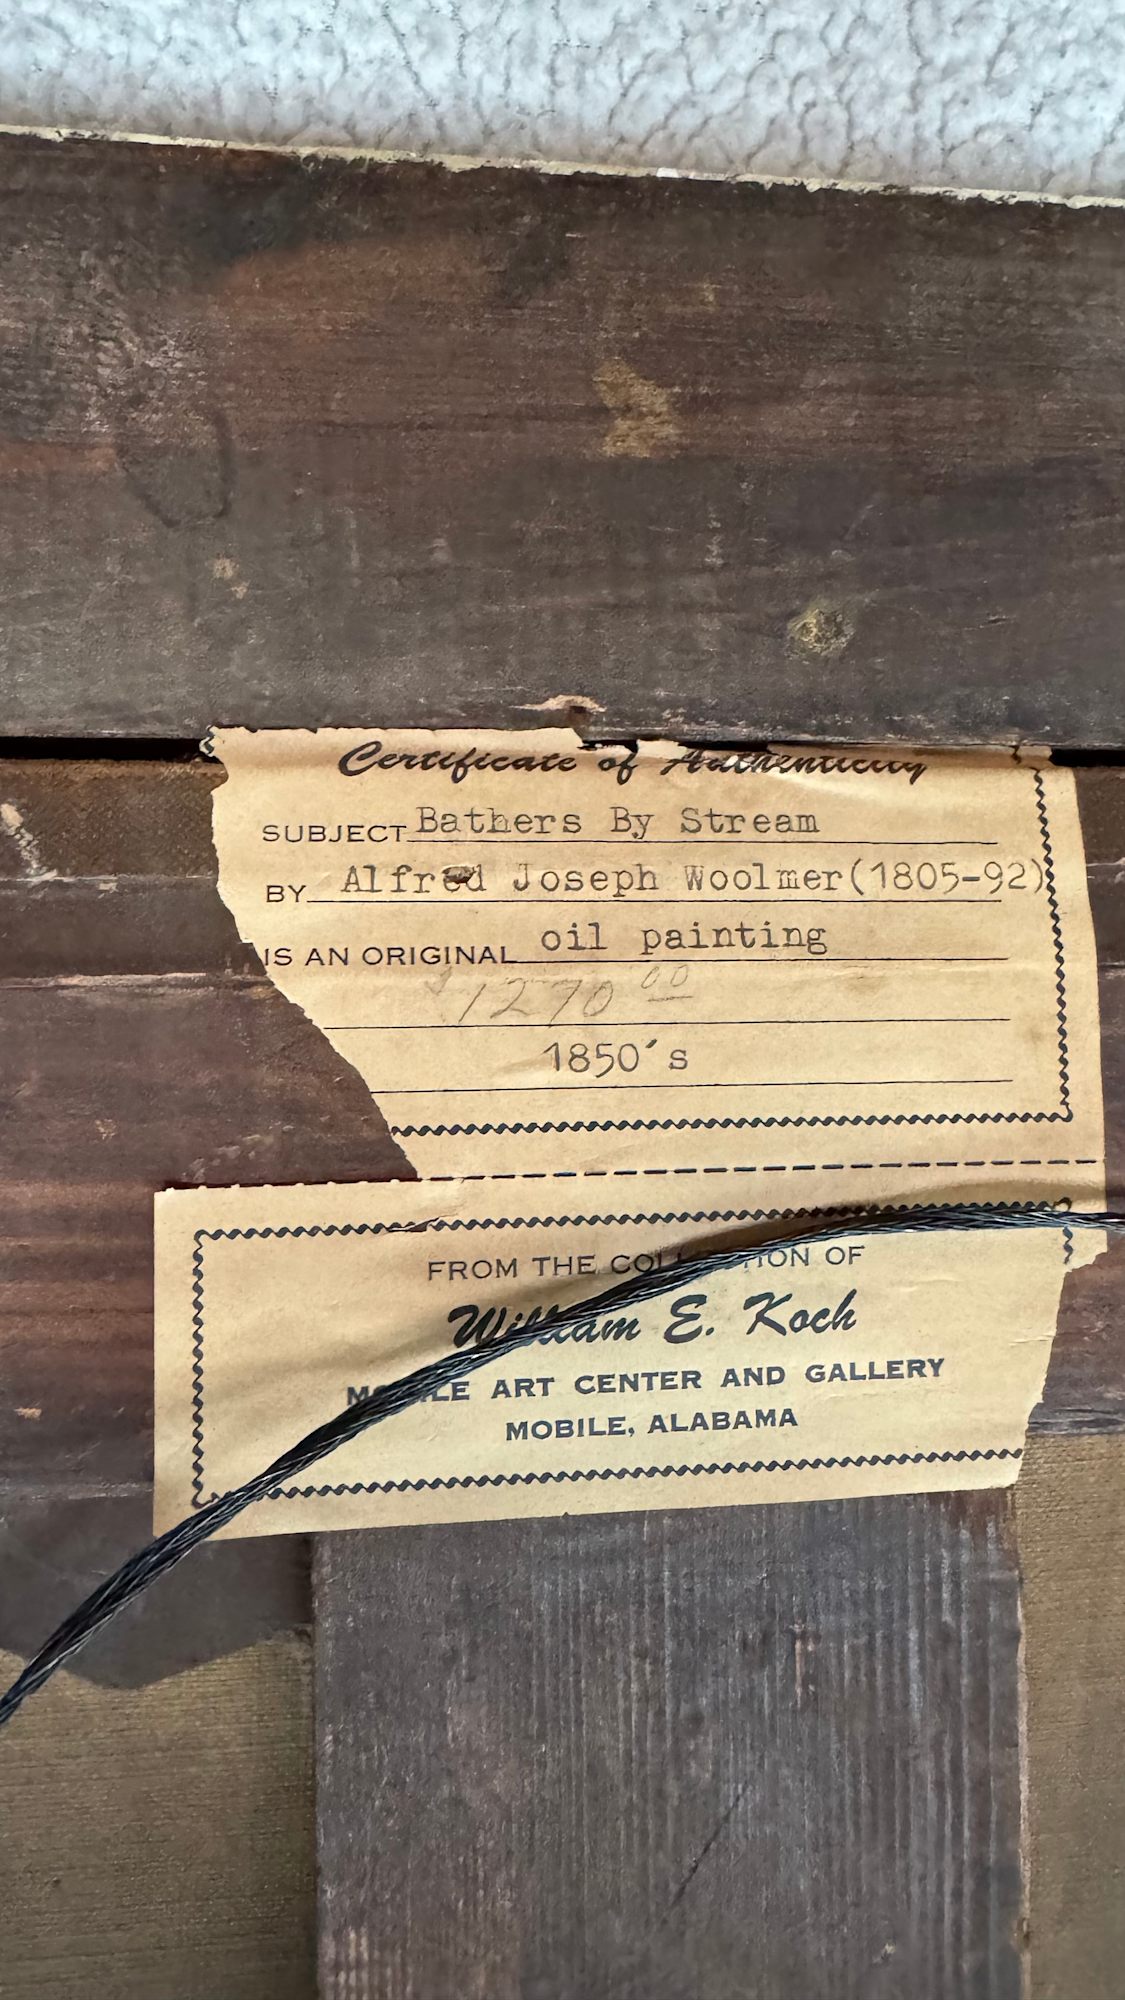 Certificate of Authenticity
SUBJECT Bathers By Stream
BY Alfred Joseph Woolmer(1805-92)
IS AN ORIGINAL oil painting
$1270 00
1850's
FROM THE COLLECTION OF
William E. Koch
MOBILE ART CENTER AND GALLERY
MOBILE, ALABAMA